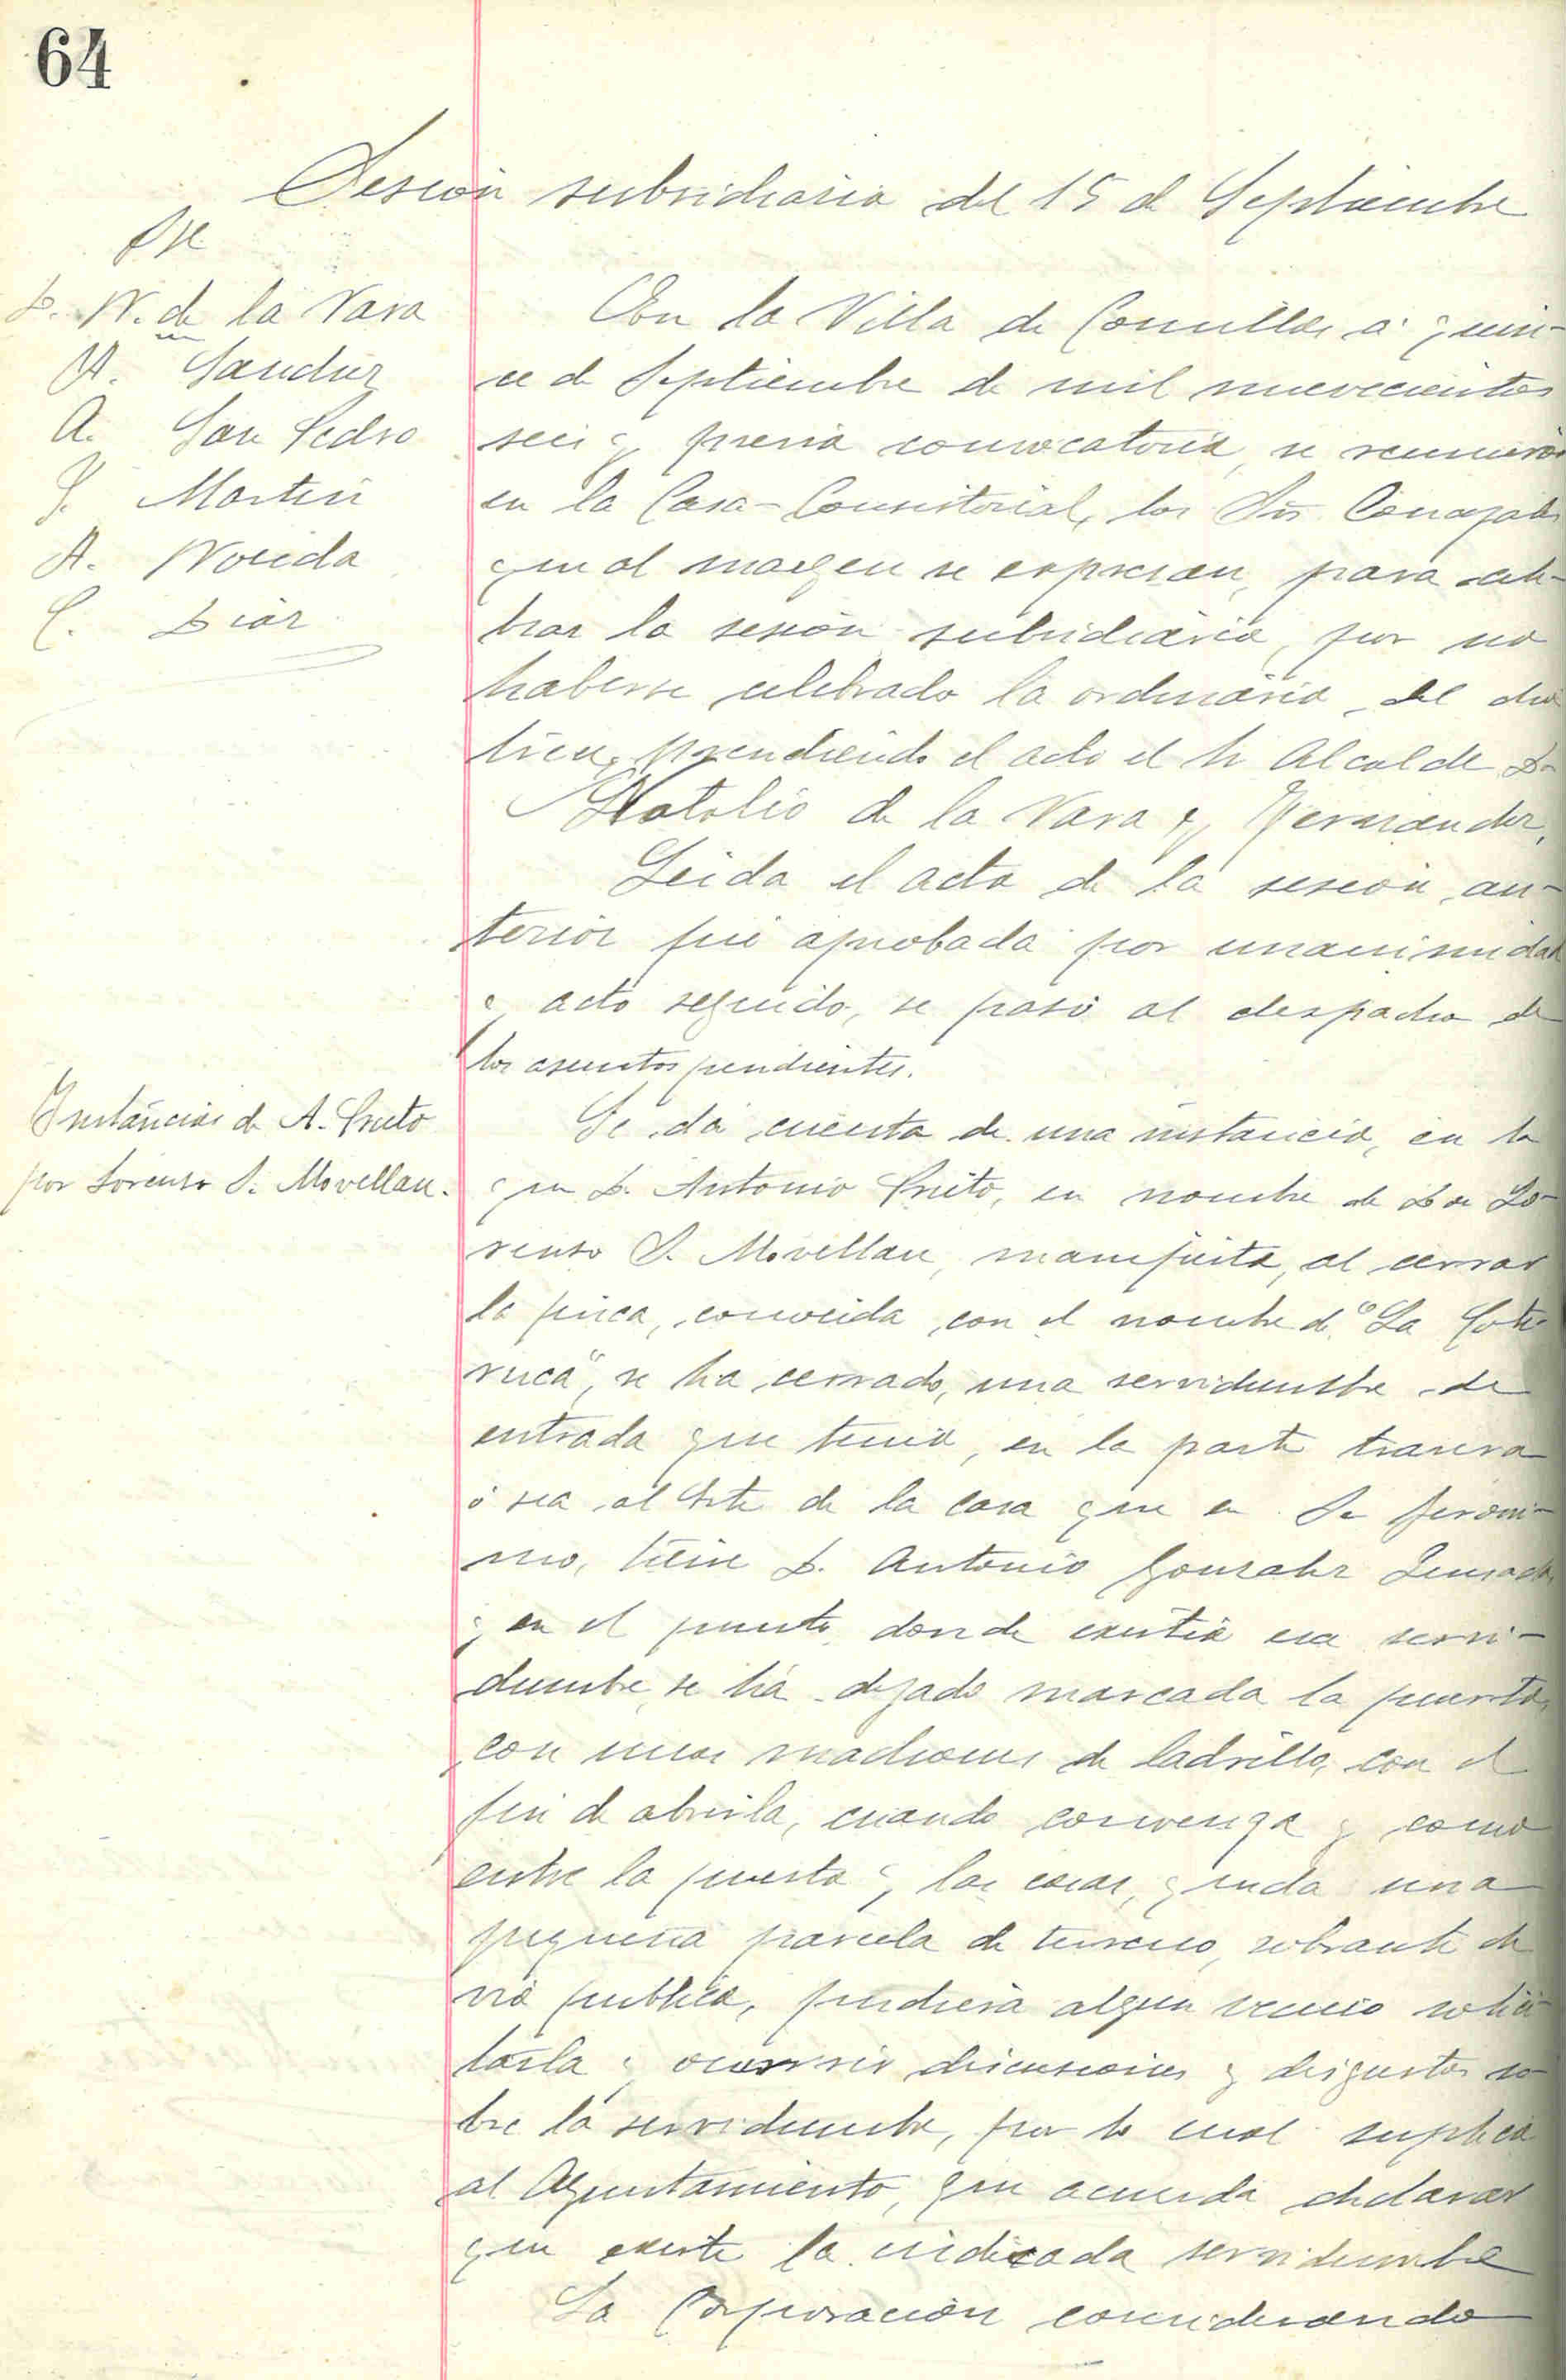 64
Sesión subsidiaria del 15 de Septiembre
D. N. de la Vara
A. Sanchez
A. San Pedro
J. Martin
A. Noriega
C. Diaz
En la Villa de Comillas a quin-
ce de Septiembre de mil novecientos
seis y previa convocatoria, se reunieron
en la Casa-Consistorial, los Srs. Concejales
que al margen se expresan, para cele-
brar la sesión subsidiaria, por no
haberse celebrado la ordinaria del dia
trece, presidiendo el acto el Sr Alcalde D.
Natalio de la Vara y Fernandez,
Leida el acta de la sesion an-
terior fué aprobada por unanimidad
y acto seguido, se pasó al despacho de
los asuntos pendientes.
Instancias de A. Prieto
por Lorenzo S. Movellan.
Se dá cuenta de una instancia, en la
que D. Antonio Prieto, en nombre de Don Lo-
renzo S. Movellan, manifiesta, al cerrar
la finca, conocida, con el nombre de "La Cote-
ruca", se ha cerrado, una servidumbre de
entrada que tenia, en la parte trasera
ó sea al Este de la casa que en Sn Jeroni-
mo, tiene D. Antonio Gonzalez
y en el punto, donde existia esa servi-
dumbre, se há dejado marcada la puerta,
con unos machones de ladrillo, con el
fin de abrirla, cuando convenga y como
entre la puerta y las casas, queda una
pequeña parcela de terreno, sobrante de
via publica, pudiera algun vecino solici-
tarla y ocurrir discusiones y disgustos so-
bre lá servidumbre, por lo cual suplica
al Ayuntamiento, que acuerde declarar
que existe la indicada servidumbre
La Corporación considerando